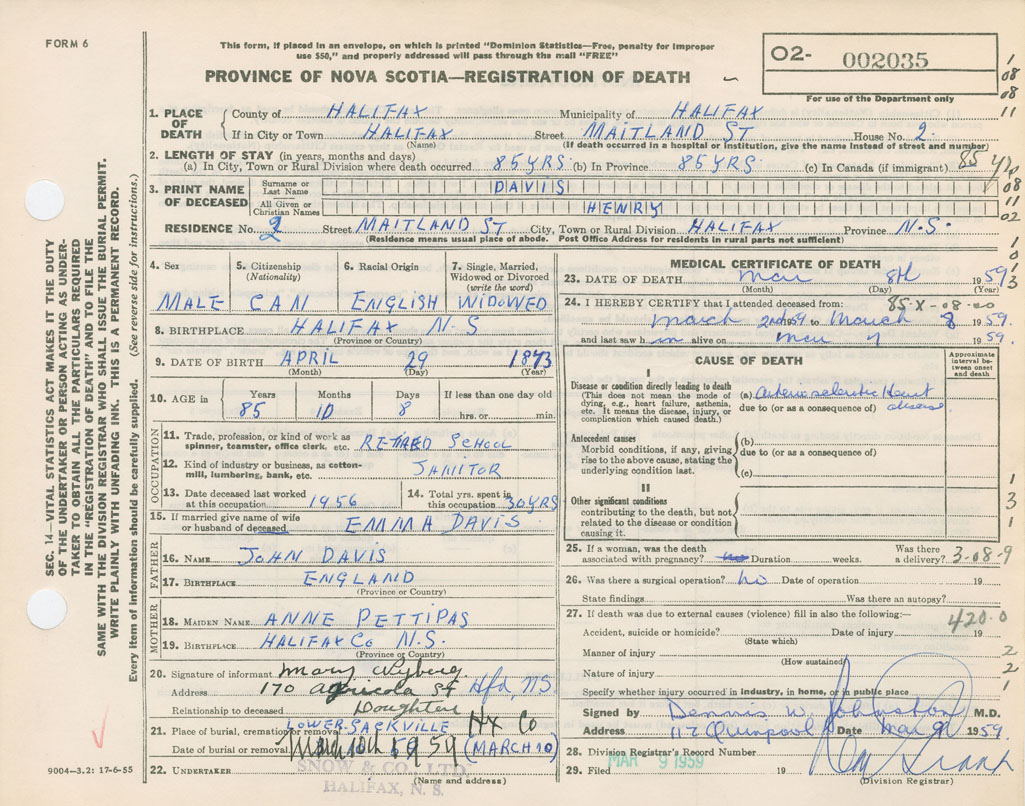 FORM 6
This form, if placed in an envelope, on which is printed "Dominion Statistics—Free, penalty for improper
use $50," and properly addressed will pass through the mail "FREE"
PROVINCE OF NOVA SCOTIA—REGISTRATION OF DEATH
O2- 002035
For use of the Department only
1. PLACE OF DEATH
County of HALIFAX Municipality of HALIFAX
If in City or Town HALIFAX Street MAITLAND ST House No. 2
(Name) (If death occurred in a hospital or institution, give the name instead of street and number)
2. LENGTH OF STAY (in years, months and days)
(a) In City, Town or Rural Division where death occurred 85YRS (b) In Province 85YRS (c) In Canada (if immigrant) 85
3. PRINT NAME OF DECEASED
Surname or Last Name DAVIS
All Given or Christian Names HENRY
RESIDENCE No. 2 Street MAITLAND ST City, Town or Rural Division HALIFAX Province N.S.
(Residence means usual place of abode. Post Office Address for residents in rural parts not sufficient)
4. Sex MALE
5. Citizenship (Nationality) CAN
6. Racial Origin ENGLISH
7. Single, Married, Widowed or Divorced (write the word) WIDOWED
8. BIRTHPLACE HALIFAX N-S
(Province or Country)
9. DATE OF BIRTH APRIL 29 1873
(Month) (Day) (Year)
10. AGE in Years 85 Months 10 Days 8 If less than one day old hrs. or min.
OCCUPATION
11. Trade, profession, or kind of work as spinner, teamster, office clerk, etc. RETIRED SCHOOL
12. Kind of industry or business, as cotton-mill, lumbering, bank, etc. JANITOR
13. Date deceased last worked at this occupation 1956
14. Total yrs. spent in this occupation 30YRS
15. If married give name of wife or husband of deceased EMMA DAVIS
FATHER
16. NAME JOHN DAVIS
17. BIRTHPLACE ENGLAND
(Province or Country)
MOTHER
18. MAIDEN NAME ANNE PETTIPAS
19. BIRTHPLACE HALIFAX CO N.S.
(Province or Country)
20. Signature of informant Mary
Address 170 Agricola St Hfx, NS.
Relationship to deceased Daughter
21. Place of burial, cremation or removal LOWER SACKVILLE Hx Co
Date of burial or removal March 10th 1959 (MARCH 10)
22. UNDERTAKER SNOW & CO., LTD.
(Name and address)
HALIFAX, N. S.
MEDICAL CERTIFICATE OF DEATH
23. DATE OF DEATH Mar 8th 1959
(Month) (Day) (Year)
24. I HEREBY CERTIFY that I attended deceased from: 85-X-08-00
March 2nd 1959 to March 8 1959.
and last saw him alive on Mar 7 1959.
CAUSE OF DEATH
Approximate interval between onset and death
I
Disease or condition directly leading to death
(This does not mean the mode of dying, e.g., heart failure, asthenia, etc. It means the disease, injury, or complication which caused death.)
(a) Arteriosclerotic Heart
due to (or as a consequence of) disease
Antecedent causes
Morbid conditions, if any, giving rise to the above cause, stating the underlying condition last.
(b)
due to (or as a consequence of)
(c)
II
Other significant conditions
contributing to the death, but not related to the disease or condition causing it.
25. If a woman, was the death associated with pregnancy? Duration weeks. Was there a delivery? 3-08-9
26. Was there a surgical operation? no Date of operation 19
State findings Was there an autopsy?
27. If death was due to external causes (violence) fill in also the following:— 420.0
Accident, suicide or homicide? Date of injury 19
(State which)
Manner of injury 2
(How sustained)
Nature of injury 2
Specify whether injury occurred in industry, in home, or in public place 1
Signed by Dennis W. Johnston M.D.
Address 112 Quinpool Date Mar 9 1959.
28. Division Registrar's Record Number
29. Filed MAR 9 1959 19
(Division Registrar)
SEC. 14—VITAL STATISTICS ACT MAKES IT THE DUTY
OF THE UNDERTAKER OR PERSON ACTING AS UNDER-
TAKER TO OBTAIN ALL THE PARTICULARS REQUIRED
IN THE "REGISTRATION OF DEATH" AND TO FILE THE
SAME WITH THE DIVISION REGISTRAR WHO SHALL ISSUE THE BURIAL PERMIT.
WRITE PLAINLY WITH UNFADING INK. THIS IS A PERMANENT RECORD.
Every item of information should be carefully supplied. (See reverse side for instructions.)
9004—3.2: 17-6-55
1
08
08
11
11
02
1
0
1
3
1
3
1